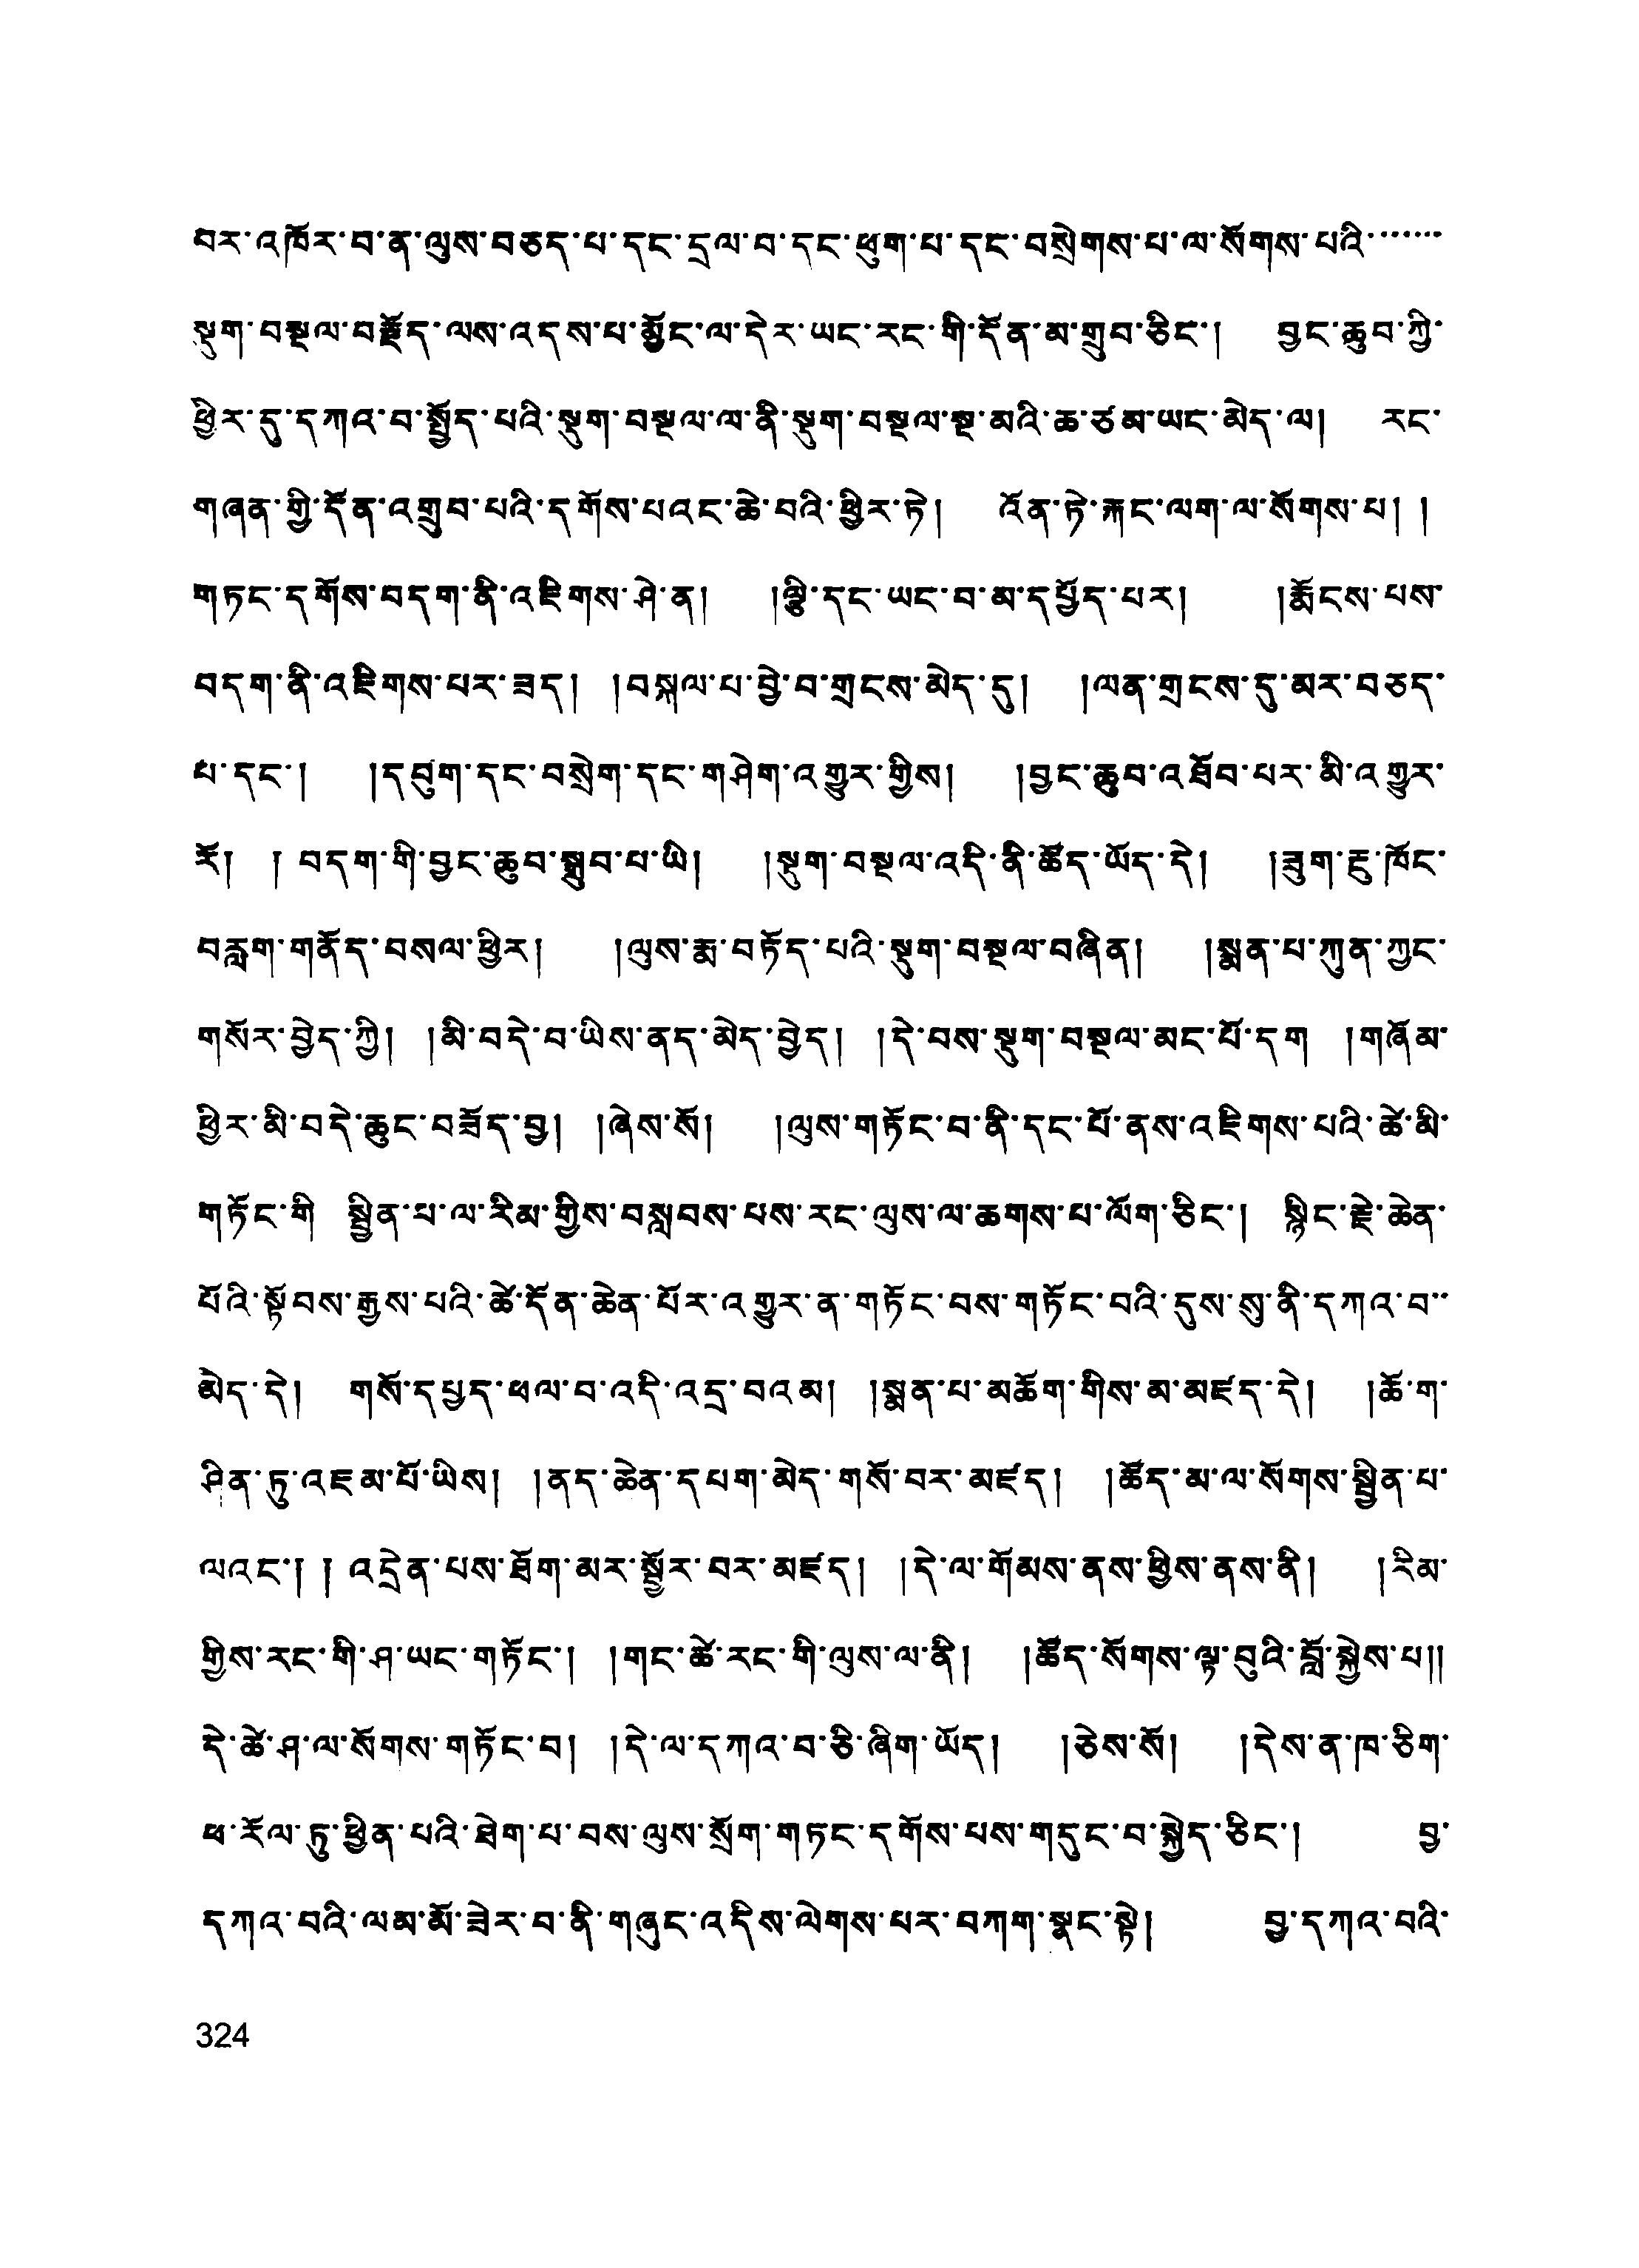 བར་འཁོར་བ་ན་ལུས་བཅད་པ་དང་དྲལ་བ་དང་ཕུག་པ་དང་བསྲེགས་པ་ལ་སོགས་པའི་······
སྡུག་བསྔལ་བརྗོད་ལས་འདས་པ་མྱོང་ལ་དེར་ཡང་རང་གི་དོན་མ་གྲུབ་ཅིང་། བྱང་ཆུབ་ཀྱི་
ཕྱིར་དུ་དཀའ་བ་སྤྱོད་པའི་སྡུག་བསྔལ་ལ་ནི་སྡུག་བསྔལ་སྔ་མའི་ཆ་ཙམ་ཡང་མེད་ལ། རང་
གཞན་གྱི་དོན་འགྲུབ་པའི་དགོས་པའང་ཆེ་བའི་ཕྱིར་ཏེ། འོན་ཏེ་རྐང་ལག་ལ་སོགས་པ། །
གཏང་དགོས་བདག་ནི་འཇིགས་ཤེ་ན། །ལྕི་དང་ཡང་བ་མ་དཔྱོད་པར། །རྨོངས་པས་
བདག་ནི་འཇིགས་པར་ཟད། །བསྐལ་པ་བྱེ་བ་གྲངས་མེད་དུ། །ལན་གྲངས་དུ་མར་བཅད་
པ་དང་། །དབུག་དང་བསྲེག་དང་གཤེག་འགྱུར་གྱིས། །བྱང་ཆུབ་འཐོབ་པར་མི་འགྱུར་
རོ། །བདག་གི་བྱང་ཆུབ་སྒྲུབ་པ་ཡི། །སྡུག་བསྔལ་འདི་ནི་ཚོད་ཡོད་དེ། །ཟུག་རྔུ་ཁོང་
བརླག་གནོད་བསལ་ཕྱིར། །ལུས་རྨ་བཏོད་པའི་སྡུག་བསྔལ་བཞིན། །སྨན་པ་ཀུན་ཀྱང་
གསོར་བྱེད་ཀྱི། །མི་བདེ་བ་ཡིས་ནད་མེད་བྱེད། །དེ་བས་སྡུག་བསྔལ་མང་པོ་དག །གཞོམ་
ཕྱིར་མི་བདེ་ཆུང་བཟོད་བྱ། །ཞེས་སོ། །ལུས་གཏོང་བ་ནི་དང་པོ་ནས་འཇིགས་པའི་ཚེ་མི་
གཏོང་གི སྦྱིན་པ་ལ་རིམ་གྱིས་བསླབས་པས་རང་ལུས་ལ་ཆགས་པ་ལོག་ཅིང་། སྙིང་རྗེ་ཆེན་
པོའི་སྟོབས་རྒྱས་པའི་ཚེ་དོན་ཆེན་པོར་འགྱུར་ན་གཏོང་བས་གཏོང་བའི་དུས་སུ་ནི་དཀའ་བ་་
མེད་དེ། གསོ་དཔྱད་ཕལ་བ་འདི་འདྲ་བའམ། །སྨན་པ་མཆོག་གིས་མ་མཛད་དེ། །ཆོ་ག་
ཤིན་ཏུ་འཇམ་པོ་ཡིས། །ནད་ཆེན་དཔག་མེད་གསོ་བར་མཛད། །ཚོད་མ་ལ་སོགས་སྦྱིན་པ་
ལའང་། །འདྲེན་པས་ཐོག་མར་སྦྱོར་བར་མཛད། །དེ་ལ་གོམས་ནས་ཕྱིས་ནས་ནི། །རིམ་
གྱིས་རང་གི་ཤ་ཡང་གཏོང་། །གང་ཚེ་རང་གི་ལུས་ལ་ནི། །ཚོད་སོགས་ལྟ་བུའི་བློ་སྐྱེས་པ།།
དེ་ཚེ་ཤ་ལ་སོགས་གཏོང་བ། །དེ་ལ་དཀའ་བ་ཅི་ཞིག་ཡོད། །ཅེས་སོ། །དེས་ན་ཁ་ཅིག་
ཕ་རོལ་ཏུ་ཕྱིན་པའི་ཐེག་པ་བས་ལུས་སྲོག་གཏང་དགོས་པས་གདུང་བ་སྐྱེད་ཅིང་། བྱ་
དཀའ་བའི་ལམ་མོ་ཟེར་བ་ནི་གཞུང་འདིས་ལེགས་པར་བཀག་སྣང་སྟེ། བྱ་དཀའ་བའི་
324